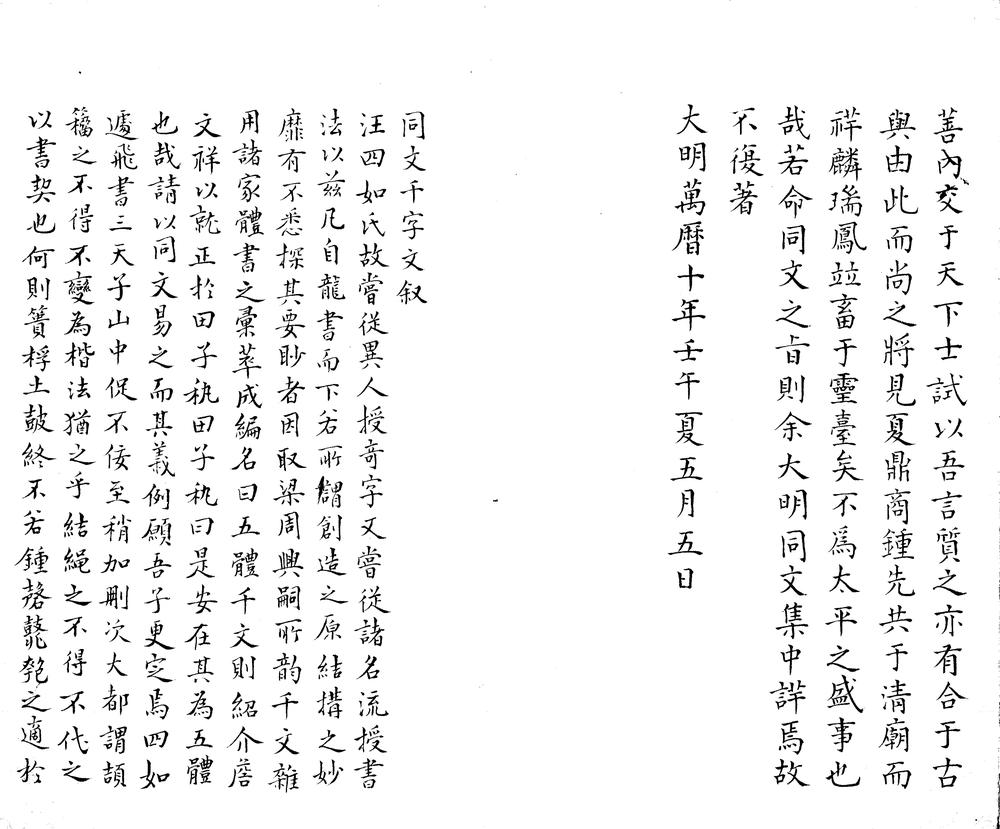 善內交于天下士試以吾言質之亦有合于古
與由此而尚之將見夏鼎商鍾先共于清廟而
祥麟瑞鳳竝畜于靈臺矣不爲太平之盛事也
哉若命同文之旨則余大明同文集中詳焉故
不復著
大明萬曆十年壬午夏五月五日
同文千字文叙
汪四如氏故嘗從異人授奇字又嘗從諸名流授書
法以茲凡自龍書而下若所謂創造之原結搆之妙
靡有不悉探其要眇者因取梁周興嗣所韵千文雜
用諸家體書之彙萃成編名曰五體千文則紹介
文祥以就正於田子秇田子秇曰是安在其為五體
也哉請以同文易之而其義例願吾子更定焉四如
遽飛書三天子山中促不佞至稍加刪次大都謂頡
籒之不得不變為楷法猶之乎結繩之不得不代之
以書契也何則簣桴土鼓終不若鍾磬之適於